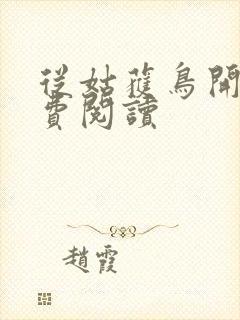 從姑蘿鳥開
費閱讀
趙霞